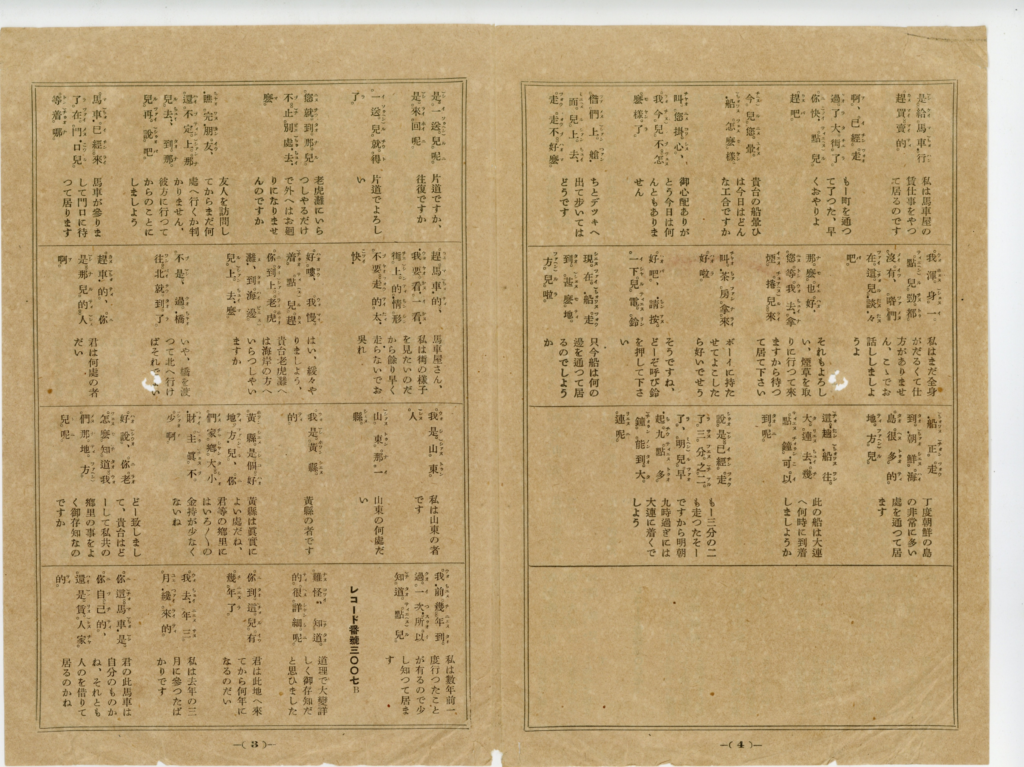 是一送兒呢、
是來回呢
片道ですか、
往復ですか
一送兒就得
了
片道でよろし
い
您就到那兒
不止別處去、
麼
老虎灘にいら
つしやるだけ
で外へはお廻
りになりませ
んのですか
瞧完朋友、
還不定上那
兒去、到那
兒再說吧
友人を訪問し
てからまだ何
處へ行くか判
かりません、
彼方に行つて
からのことに
しましよう
馬車已經來
了在門口兒
等着哪
馬車が參りま
して門口に待
つて居ります
趕馬車的、
我要看一看
橋上的情形
不要走的太
快
馬車屋さん、
私は橋の樣子
を見たいのだ
から餘り早く
走らないでお
吳れ
好嘍、我慢
着點兒趕
你到上老虎
灘、到海邊
兒上去、麼
はい、緩々や
りましよう、
貴台老虎灘へ
は海岸の方へ
いらつしやい
ますか
不是、過橋
往北就到了
いや、橋を渡
つて北へ行け
ばそれで
趕車的、你
是那兒的人
啊
君は何處の者
だい
我是山東
人
私は山東の者
です
山東那一
縣
山東の何處だ
い
我是黃縣
的
黃縣の者です
黃縣是個好
地方兒、你
們家鄉大小
財主眞不
少啊
黃縣は眞實に
よい處だね、
君等の鄉里に
はいろ〳〵の
金持が少なく
ないね
好說、你老
怎麼知道我
們那地方
兒呢
どー致しまし
て、貴台はど
ーして私共の
鄉里の事をよ
く御存知なの
ですか
我前幾年到
過一次、所以
知道點兒
私は數年前一
度行つたこと
が有るので少
し知つて居ま
す
レコード番號三〇〇七B
難怪、知道
的很詳細呢
道理で大變詳
しく御存知だ
と思ひました
你到這兒有
幾年了
君は此地へ來
てから何年に
なるのだい
我去年三
月纔來的
私は去年の三
月に參つたば
かりです
你這馬車是
你自己的、
還是賃人家
的
君の此馬車は
自分のものか
ね、それとも
人のを借りて
居るのかね
—(3)—
是給馬車行
趕買賣的
私は馬車屋の
賃仕事をやつ
て居るのです
啊、已經走
過了大街了
你快一點兒
趕吧
もー町を通つ
て了つた、早
くおやりよ
今兒您暈
船怎麼樣
貴台の船暈ひ
は今日はどん
な工合ですか
叫您掛心、
我今兒不怎
麼樣了
御心配ありが
とう今日は何
んともありま
せん
偺們上艙
面兒上去、
走一走不好麼
ちとデツキへ
出て步いては
どうです
我渾身一
點兒勁都
沒有、喒們
在這兒談々
吧
私はまだ全身
がだるくて仕
方がありませ
ん、こゝでお
話ししましよ
うよ
那麼也好、
您等我去拿
煙捲兒來
それもよろし
い、煙草を取
りに行つて來
ますから待つ
て居て下さい
叫茶房拿來
好啦
ボーイに持た
せてよこした
ら好いでせう
好吧、請按
一下兒電鈴
そうですね、
どーぞ呼び鈴
を押して下さ
い
現在船走
到甚麼地
方兒啦
只今船は何の
邊を通つて居
るのでしよう
船正走
到朝鮮海
島很多的
地方兒
丁度朝鮮の島
の非常に多い
處を通つて居
ます
這趟船往
大連去、幾
點鐘可以
到呢
此の船は大連
へ何時に到着
しましようか
說是已經走
了三分之二
了、明兒早
起九點多
鐘能到大
連呢
もー三分の二
も走つたそー
ですから明朝
九時過ぎには
大連に着くで
しよう
—(4)—